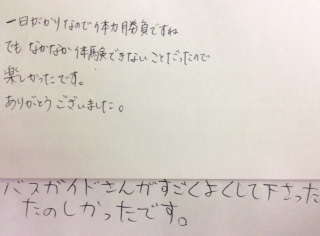 一日がかりなので体力勝負ですね
でも なかなか体験できないことだったので
楽しかったです。
ありがとうございました。
バスガイドさんがすごくよくして下さった
たのしかったです。